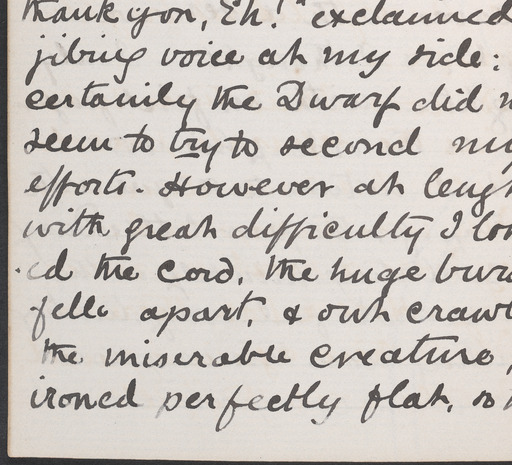 thank you, Eh!" exclaimed
jibing voice at my side:
certainly the Dwarf did
seem to try to second my
efforts. However at leng
with great difficulty I loo
ed the cord, the huge bun
fell apart, & out craw
the miserable creature,
ironed perfectly flat, so